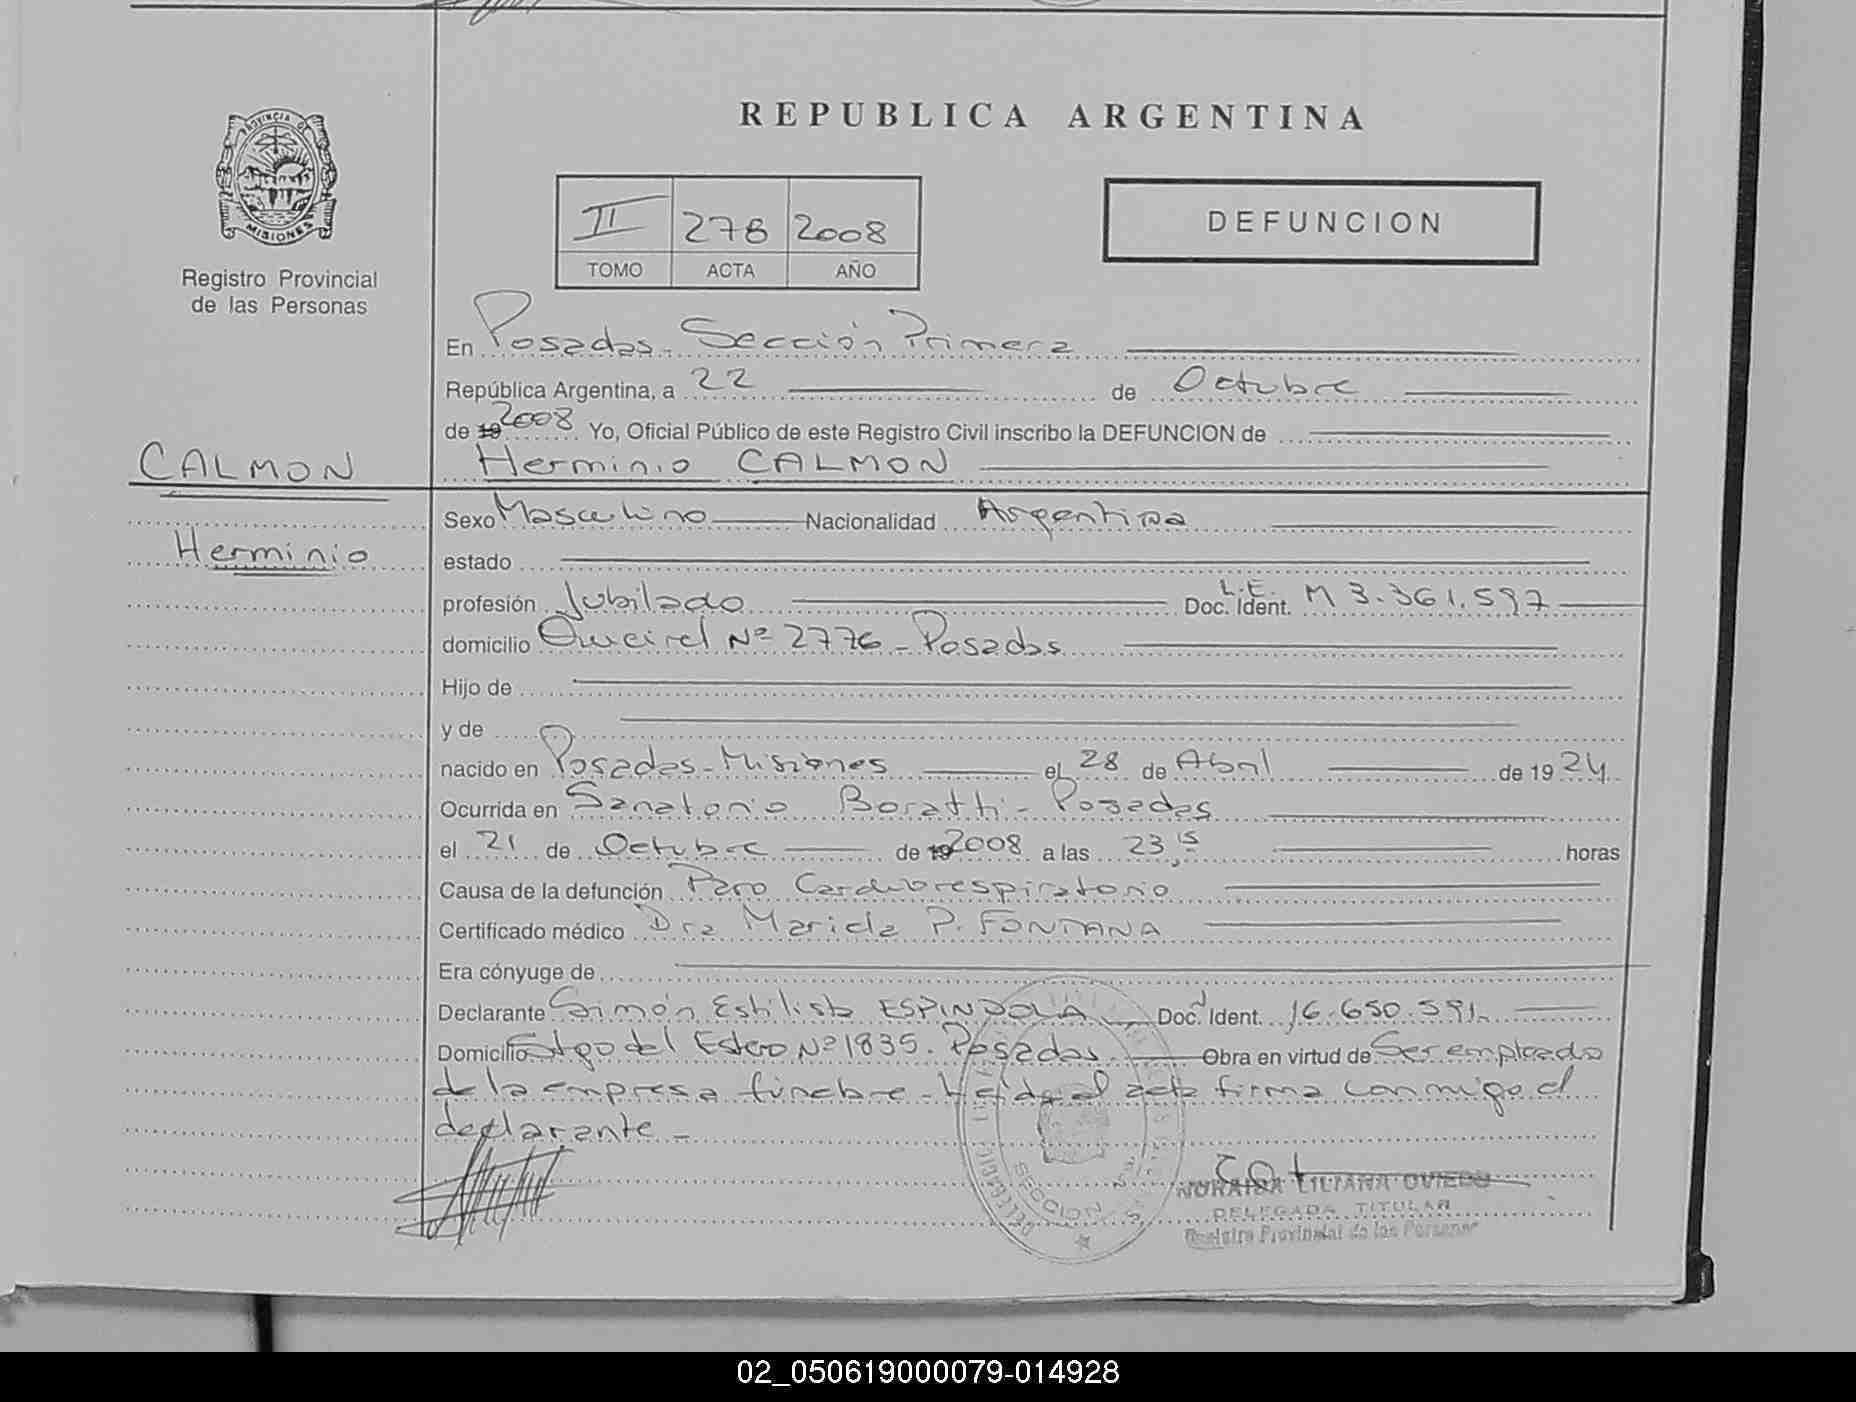 REPUBLICA ARGENTINA
PROVINCIA DE
MISIONES
Registro Provincial
de las Personas
II 278 2008
TOMO ACTA AÑO
DEFUNCION
En Posadas - Sección Primera
República Argentina, a 22 de Octubre
de 19 2008 Yo, Oficial Público de este Registro Civil inscribo la DEFUNCION de
CALMON
Herminio CALMON
Herminio
Sexo Masculino Nacionalidad Argentina
estado
profesión Jubilado Doc. Ident. L.E. M 3.361.597
domicilio Nº 2776 - Posadas
Hijo de
y de
nacido en Posadas - Misiones el 28 de Abril de 1924
Ocurrida en Sanatorio Boratti - Posadas
el 21 de Octubre de 19 2008 a las 23 15 horas
Causa de la defunción Paro Cardiorespiratorio
Certificado médico Dra Mariela P. FONTANA
Era cónyuge de
Declarante Simón ESPINDOLA Doc. Ident. 16.650.591
Domicilio Stgo del Estero Nº 1835. Posadas. Obra en virtud de Ser empleado
de la empresa fúnebre - Leída el acta firma conmigo el
declarante -
SECCION
NORAIDA LILIANA OVIEDO
DELEGADA TITULAR
Registro Provincial de las Personas
02_050619000079-014928